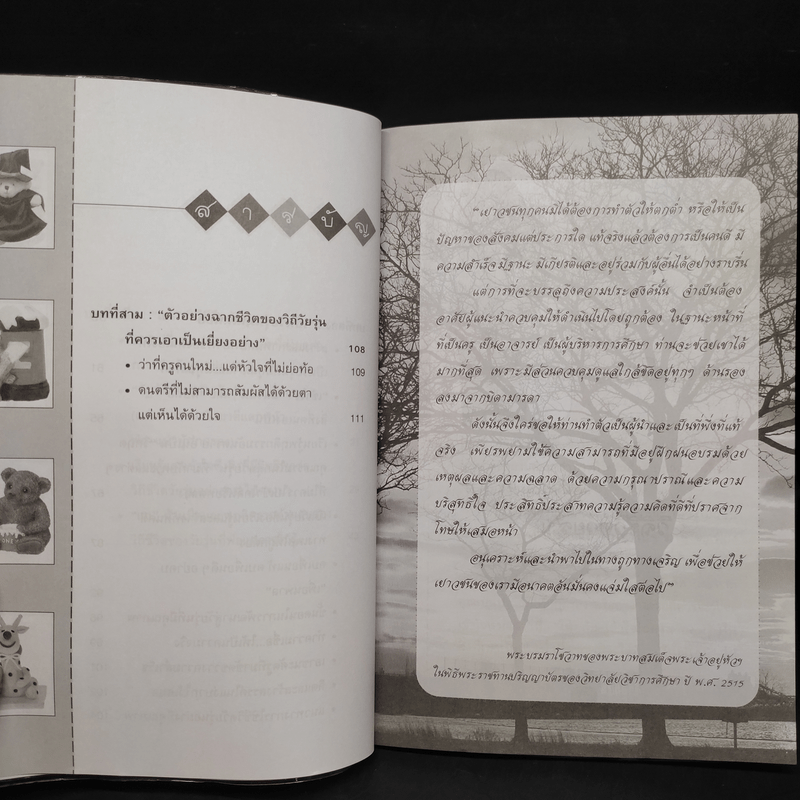 สารบัญ
บทที่สาม : "ตัวอย่างฉากชีวิตของวิถีวัยรุ่น
ที่ควรเอาเป็นเยี่ยงอย่าง" 108
• ว่าที่ครูคนใหม่...แต่หัวใจที่ไม่ย่อท้อ 109
• ดนตรีที่ไม่สามารถสัมผัสได้ด้วยตา
แต่เห็นได้ด้วยใจ 111
"เยาวชนทุกคนมิได้ต้องการทำตัวให้ตกต่ำ หรือให้เป็น
ปัญหาของสังคมแต่ประการใด แท้จริงแล้วต้องการเป็นคนดี มี
ความสำเร็จ มีฐานะ มีเกียรติและอยู่ร่วมกับผู้อื่นได้อย่างราบรื่น
แต่การที่จะบรรลุถึงความประสงค์นั้น จำเป็นต้อง
อาศัยผู้แนะนำควบคุมให้ดำเนินไปโดยถูกต้อง ในฐานะหน้าที่
ที่เป็นครู เป็นอาจารย์ เป็นผู้บริหารการศึกษา ท่านจะช่วยเขาได้
มากที่สุด เพราะมีส่วนควบคุมดูแลใกล้ชิดอยู่ทุกๆ ด้านรอง
ลงมาจากบิดามารดา
ดังนั้นจึงใคร่ขอให้ท่านทำตัวเป็นผู้นำและเป็นที่พึ่งที่แท้
จริง เพียรพยายามใช้ความสามารถที่มีอยู่ฝึกฝนอบรมด้วย
เหตุผลและความฉลาด ด้วยความกรุณาปราณีและความ
บริสุทธิ์ใจ ประสิทธิ์ประสาทความรู้ความคิดที่ดีที่ปราศจาก
โทษให้เสมอหน้า
อนุเคราะห์และนำพาไปในทางถูกทางเจริญ เพื่อช่วยให้
เยาวชนของเรามีอนาคตอันมั่นคงแจ่มใสต่อไป"
พระบรมราโชวาทของพระบาทสมเด็จพระเจ้าอยู่หัวฯ
ในพิธีพระราชทานปริญญาบัตรของวิทยาลัยวิชาการศึกษา ปี พ.ศ. 2515